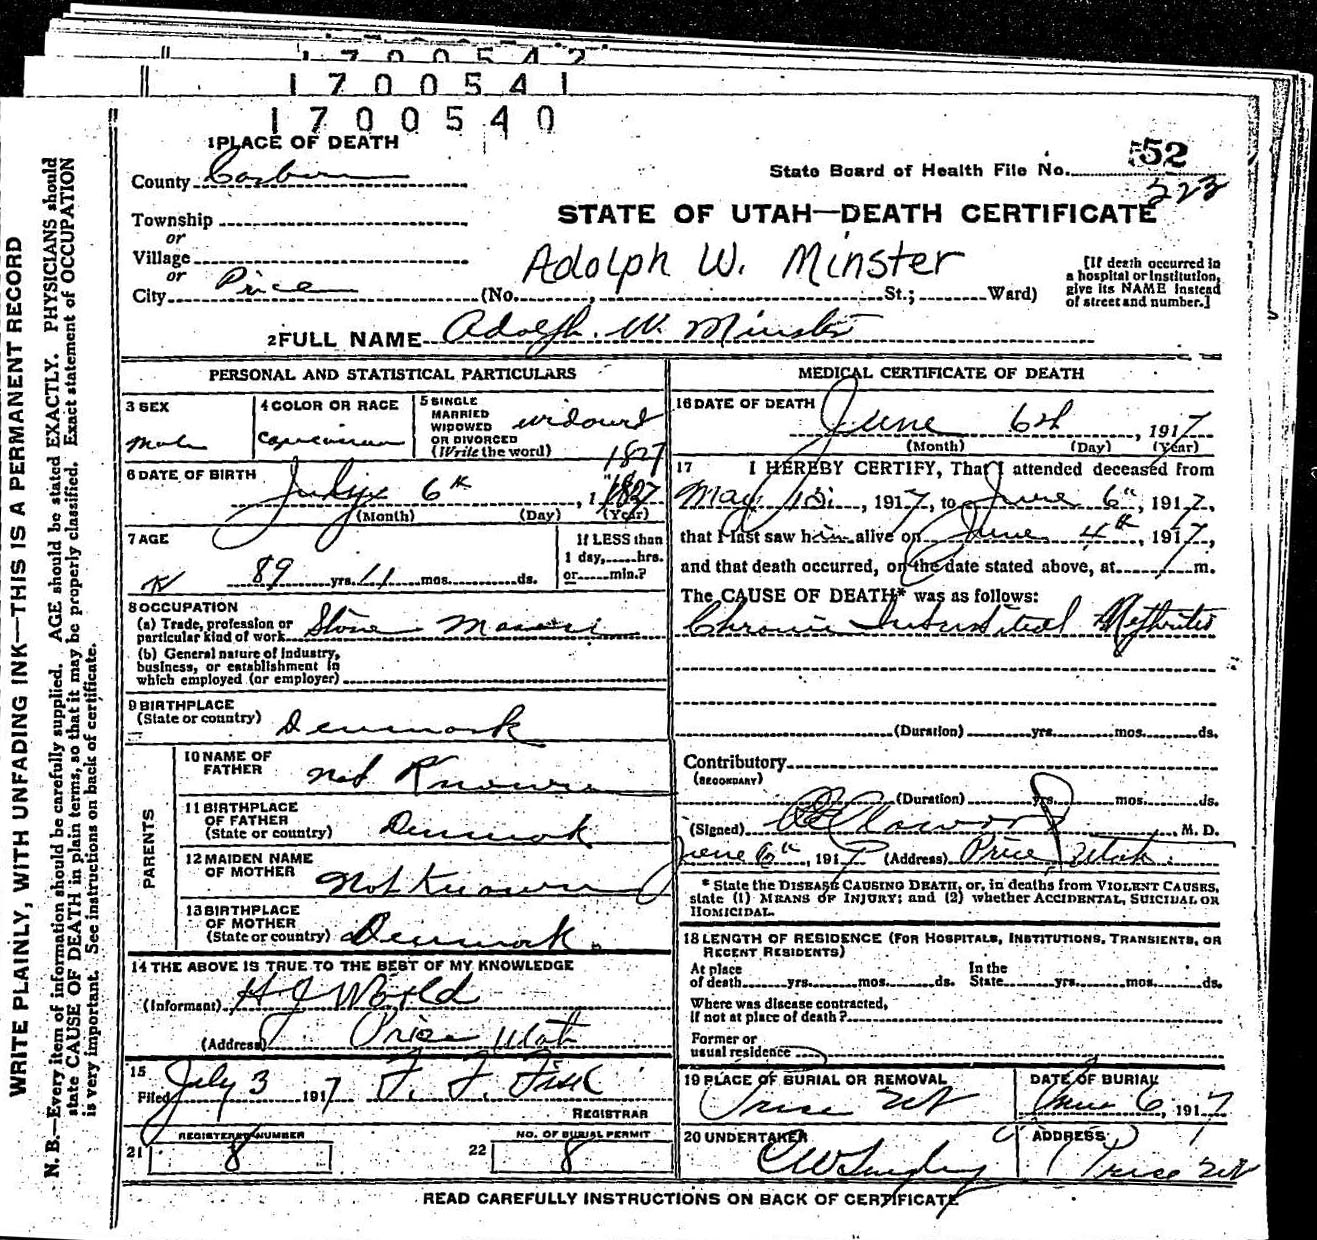 1 7 0 0 5 4 2
1 7 0 0 5 4 1
1 7 0 0 5 4 0
WRITE PLAINLY, WITH UNFADING INK—THIS IS A PERMANENT RECORD
N. B.—Every item of information should be carefully supplied. AGE should be stated EXACTLY. PHYSICIANS should
state CAUSE OF DEATH in plain terms, so that it may be properly classified. Exact statement of OCCUPATION
is very important. See instructions on back of certificate.
1 PLACE OF DEATH
County Carbon
Township
or
Village
or
City Price (No. , St.; Ward)
State Board of Health File No. 52
223
STATE OF UTAH—DEATH CERTIFICATE
Adolph W. Minster
[If death occurred in
a hospital or institution,
give its NAME instead
of street and number.]
2 FULL NAME Adolph. W. Minster
PERSONAL AND STATISTICAL PARTICULARS
3 SEX
Male
4 COLOR OR RACE
5 SINGLE
MARRIED
WIDOWED
OR DIVORCED
(Write the word)
6 DATE OF BIRTH
1827
July 6th , 1 1827
(Month) (Day) (Year)
7 AGE
89 yrs. 11 mos. ds.
If LESS than
1 day, hrs.
or min.?
8 OCCUPATION
(a) Trade, profession or
particular kind of work Stone Mason
(b) General nature of industry,
business, or establishment in
which employed (or employer)
9 BIRTHPLACE
(State or country) Denmark
PARENTS
10 NAME OF
FATHER Not Known
11 BIRTHPLACE
OF FATHER
(State or country) Denmark
12 MAIDEN NAME
OF MOTHER Not Known
13 BIRTHPLACE
OF MOTHER
(State or country) Denmark.
14 THE ABOVE IS TRUE TO THE BEST OF MY KNOWLEDGE
(Informant)
(Address) Price Utah
15
Filed July 3 191 7
REGISTRAR
21 REGISTERED NUMBER
8
22 NO. OF BURIAL PERMIT
8
MEDICAL CERTIFICATE OF DEATH
16 DATE OF DEATH
June 6th , 1917
(Month) (Day) (Year)
17 I HEREBY CERTIFY, That I attended deceased from
May , 1917, to June 6th, 1917,
that I last saw him alive on June 4th, 1917,
and that death occurred, on the date stated above, at m.
The CAUSE OF DEATH* was as follows:
Chronic Interstitial Nephritis
(Duration) yrs. mos. ds.
Contributory
(SECONDARY)
(Duration) yrs. mos. ds.
(Signed) M. D.
June 6th, 1917 (Address) Price Utah.
* State the DISEASE CAUSING DEATH, or, in deaths from VIOLENT CAUSES,
state (1) MEANS OF INJURY; and (2) whether ACCIDENTAL, SUICIDAL OR
HOMICIDAL.
18 LENGTH OF RESIDENCE (FOR HOSPITALS, INSTITUTIONS, TRANSIENTS, OR
RECENT RESIDENTS)
At place
of death yrs. mos. ds.
In the
State yrs. mos. ds.
Where was disease contracted,
if not at place of death?
Former or
usual residence
19 PLACE OF BURIAL OR REMOVAL
Price Ut
DATE OF BURIAL
June 6, 1917
20 UNDERTAKER
ADDRESS
Price Ut
READ CAREFULLY INSTRUCTIONS ON BACK OF CERTIFICATE